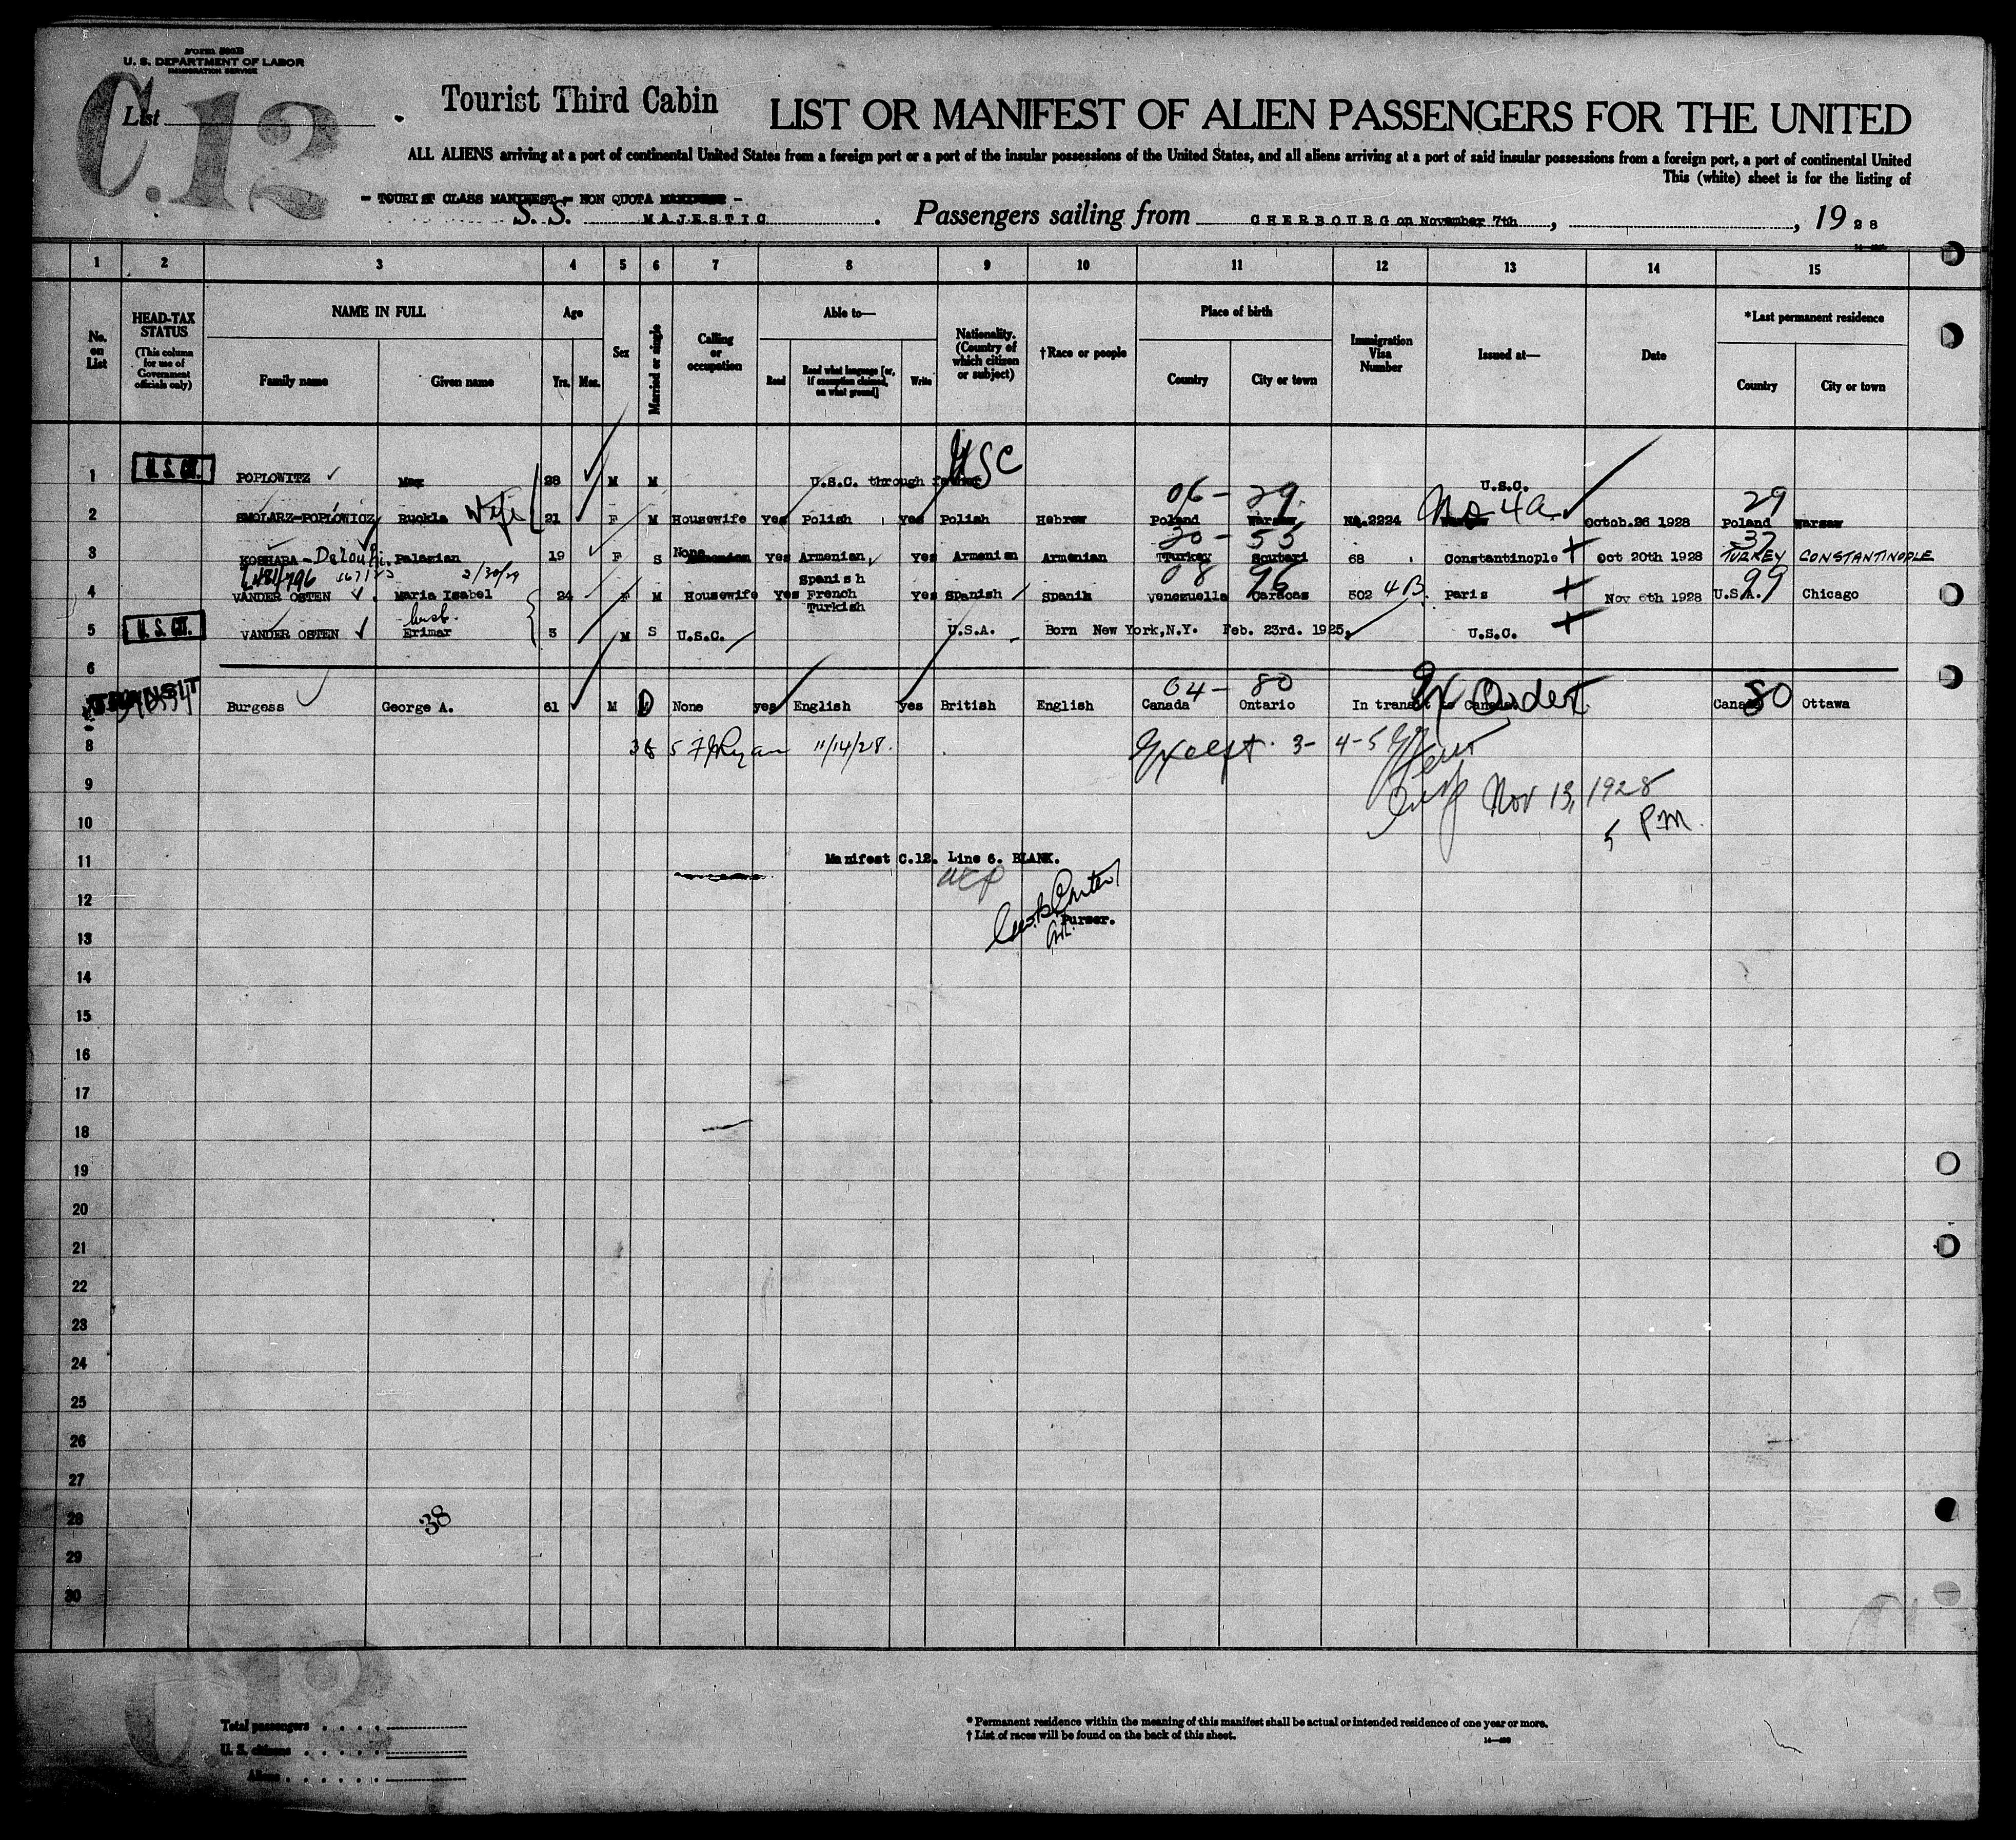 Form 500B
U. S. DEPARTMENT OF LABOR
IMMIGRATION SERVICE
C.12
List
Tourist Third Cabin
LIST OR MANIFEST OF ALIEN PASSENGERS FOR THE UNITED
ALL ALIENS arriving at a port of continental United States from a foreign port or a port of the insular possessions of the United States, and all aliens arriving at a port of said insular possessions from a foreign port, a port of continental United
This (white) sheet is for the listing of
- TOURIST CLASS MANIFEST - NON QUOTA -
S. S. MAJESTIC. Passengers sailing from CHERBOURG on November 7th, , 1928
1 2 3 4 5 6 7 8 9 10 11 12 13 14 15
No. on List
HEAD-TAX STATUS (This column for use of Government officials only)
NAME IN FULL Family name Given name
Age Yrs. Mos.
Sex
Married or single
Calling or occupation
Able to— Read Read what language [or, if exemption claimed, on what ground] Write
Nationality. (Country of which citizen or subject)
†Race or people
Place of birth Country City or town
Immigration Visa Number
Issued at—
Date
*Last permanent residence Country City or town
1 U. S. CIT. POPLOWITZ Max 28 M M U.S.C. through father USC U.S.C.
06 - 29. 29
2 SMOLARZ-POPLOWICZ Ruckla Wife 21 F M Housewife Yes Polish Yes Polish Hebrew Poland Warsaw NQ.2224 No 4a Warsaw Octob.26 1928 Poland Warsaw
30 - 55 37
3 KOSHABA - Palazian 19 F S None Yes Armenian Yes Armenian Armenian Turkey Scutari 68 Constantinople Oct 20th 1928 TURKEY CONSTANTINOPLE
2/30/29 Spanish 08 96 99
4 VANDER OSTEN Maria Isabel 24 F M Housewife Yes French Yes Spanish Spanih Venezuella Caracas 502 4B Paris Nov 6th 1928 U.S.A. Chicago
Turkish
5 U. S. CIT. VANDER OSTEN Erimar 3 M S U.S.C. U.S.A. Born New York,N.Y. Feb. 23rd. 1925, U.S.C.
6
04 - 80
TRANSIT Burgess George A. 61 M D None yes English yes British English Canada Ontario In transit to Canada. Canada 80 Ottawa
8 11/14/28. Except 3- 4-5
9 Nov 13, 1928
10 5 PM.
11 Manifest C.12. Line 6. BLANK.
12
Purser.
13
14
15
16
17
18
19
20
21
22
23
24
25
26
27
28 38
29
30
C12
Total passengers . . . .
U. S. citizens . . . . .
Aliens . . . . . .
* Permanent residence within the meaning of this manifest shall be actual or intended residence of one year or more.
† List of races will be found on the back of this sheet.